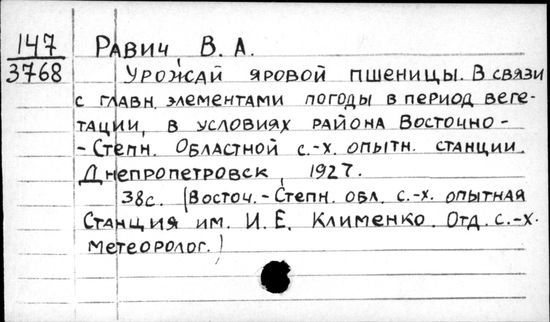 147
3768
Равич, В. А.
Урожай яровой пшеницы. В связи
с главн. элементами погоды в период веге-
тации, в условиях района Восточно-
-Степн. Областной с.-х. опытн. станции.
Днепропетровск, 1927.
38с. (Восточ.-Степн. обл. с.-х. опытная
Станция им. И. Е. Клименко. Отд. с.-х.
метеоролог.)